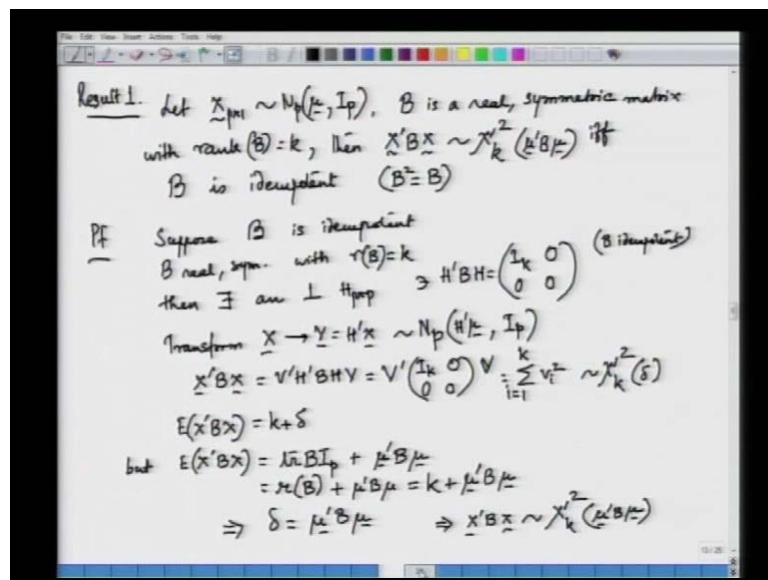 File Edit View Insert Actions Tools Help
Result 1. Let X_{p×1} ~ N_p(μ, I_p), B is a real, symmetric matrix
with rank(B) = k, then X'BX ~ χ'^2_k (μ'Bμ) iff
B is idempotent (B² = B)
Pf Suppose B is idempotent
B real, sym. with r(B) = k
then ∃ an ⊥ H_{p×p} ∋ H'BH = (I_k 0 0 0) (B idempotent)
Transform X → V = H'X ~ N_p(H'μ, I_p)
X'BX = V'H'BHV = V'(I_k 0 0 0)V = Σ_{i=1}^{k} v_i² ~ χ'^2_k (δ)
E(X'BX) = k + δ
but E(X'BX) = tr B I_p + μ'Bμ
= r(B) + μ'Bμ = k + μ'Bμ
⇒ δ = μ'Bμ ⇒ X'BX ~ χ'^2_k (μ'Bμ)